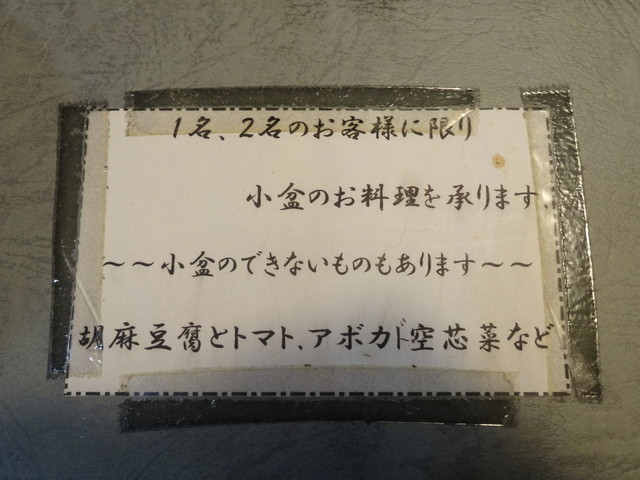 1名、2名のお客様に限り
小盆のお料理を承ります
～～小盆のできないものもあります～～
胡麻豆腐とトマト、アボカド空芯菜など